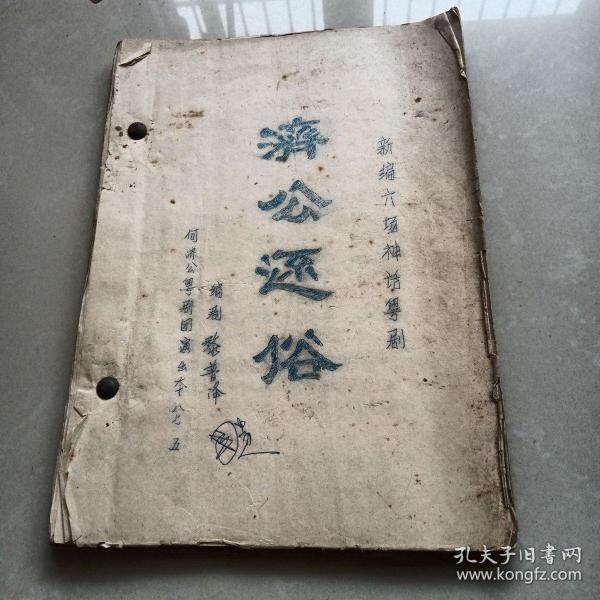 新编六场神话粤剧
濟公还俗
编剧 黎普泽
何济公粤剧团演出
孔夫子旧书网
www.kongfz.com